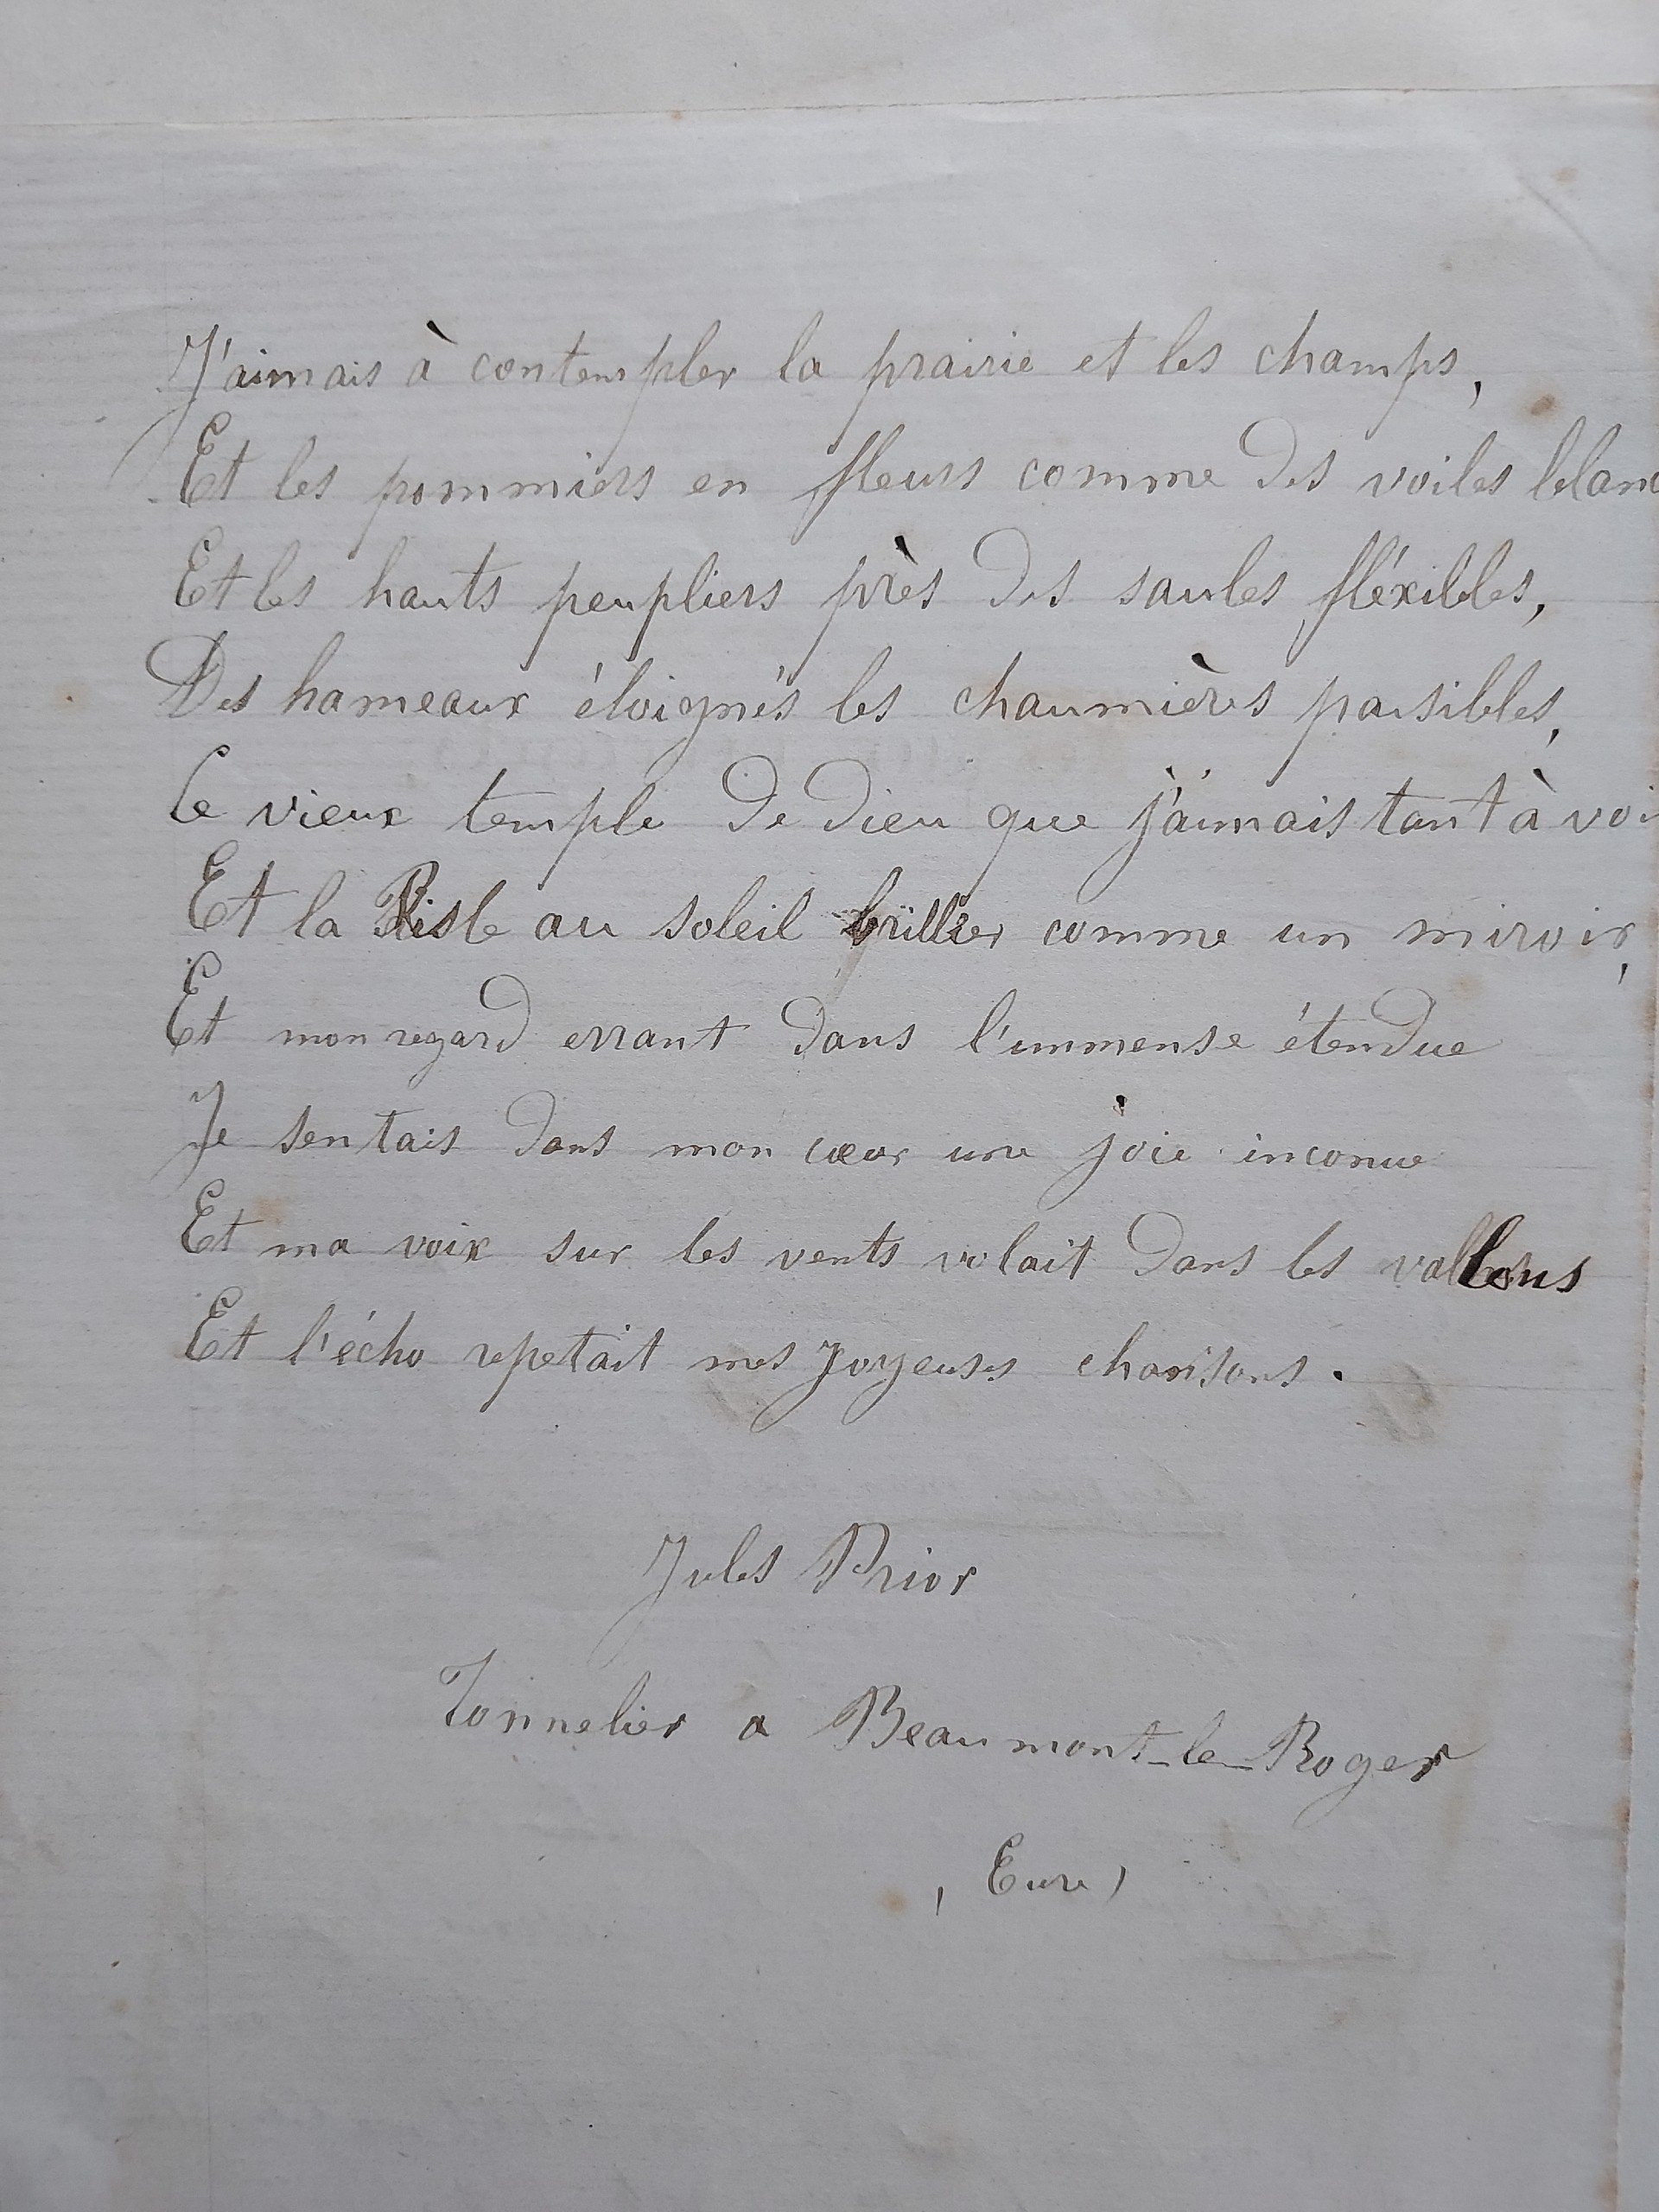 J'aimais à contempler la prairie et les champs,
Et les pommiers en fleurs comme des voiles blanc
Et les hauts peupliers près des saules fléxibles,
Des hameaux éloignés les chaumières paisibles,
Le vieux temple de Dieu que j'aimais tant à voi
Et la Risle au soleil briller comme un miroir,
Et mon regard errant dans l'immense étendue
Je sentais dans mon cœur une joie inconue
Et ma voix sur les vents volait dans les vallons
Et l'écho repetait mes joyeuses chansons.
Jules Prior
Tonnelier a Beaumont-le-Roger
(Eure)